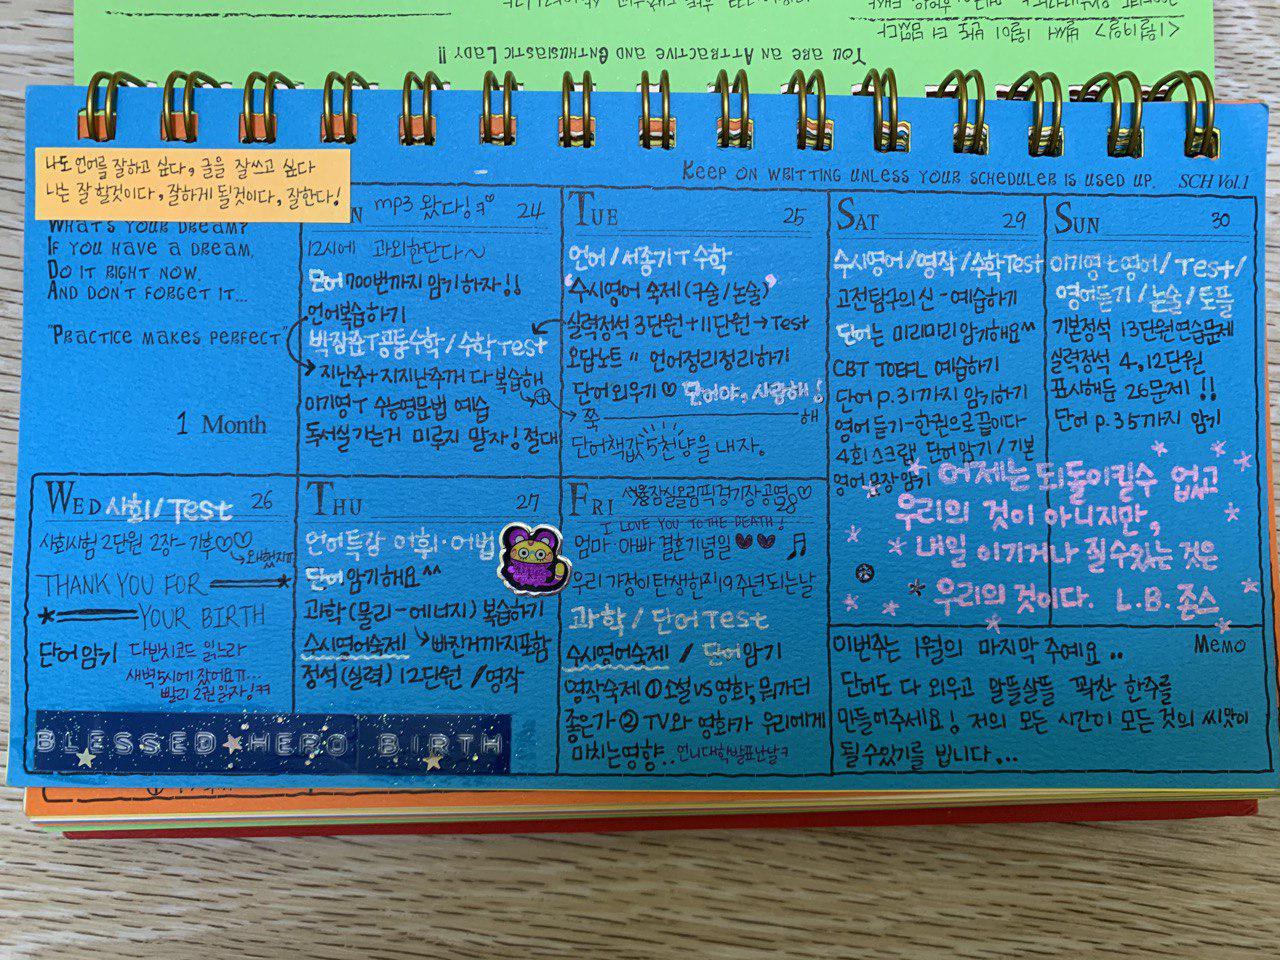 YOU ARE AN ATTRACTIVE AND ENTHUSIASTIC LADY!!
나도 언어를 잘하고 싶다, 글을 잘쓰고 싶다
나는 잘 할것이다, 잘하게 될것이다, 잘한다!
KEEP ON WRITTING UNLESS YOUR SCHEDULER IS USED UP. SCH Vol.1
WHAT'S YOUR DREAM?
IF YOU HAVE A DREAM,
DO IT RIGHT NOW.
AND DON'T FORGET IT...
"PRACTICE MAKES PERFECT"
1 Month
N mp3 왔다!ㅋ♡ 24
12시에 과외한단다~
단어 700번까지 암기하자!!
언어복습하기
T공통수학/수학Test
지난주+지지난주꺼 다 복습해
이기영T 수능영문법 예습
독서실가는거 미루지 말자! 절대
TUE 25
언어/서종기T 수학
수시영어 숙제(구술/논술)
실력정석 3단원+11단원→Test
오답노트 〃 언어정리정리하기
단어외우기♡ 단어야, 사랑해!
쭉 해
단어책값 5천냥을 내자.
SAT 29
수시영어/영작/수학Test
고전탐구의신-예습하기
단어는 미리미리암기해요^^
CBT TOEFL 예습하기
단어 p.31까지 암기하기
영어듣기-한권으로끝이다
4회 스크랩 단어암기/기본
영어문장암기
SUN 30
이기영t영어/Test/
영어듣기/논술/토플
기본정석 13단원연습문제
실력정석 4,12단원
표시해둔 26문제!!
단어 p.35까지 암기
어제는 되돌이킬수 없고
우리의 것이 아니지만,
내일 이기거나 질수있는 것은
우리의 것이다. L.B.존스
WED 사회/Test 26
사회시험 2단원 2장-기후♡♡
THANK YOU FOR
YOUR BIRTH
단어암기 다빈치코드 읽느라
새벽5시에 잤어요ㅠ...
빨리 2권읽자!ㅋㅋ
BLESSED HERO BIRTH
THU 27
언어특강 어휘·어법
단어암기해요^^
과학(물리-에너지)복습하기
수시영어숙제→빠진거까지포함
정석(실력)12단원/영작
FRI 28
서울잠실올림픽경기장공연♡
I LOVE YOU TO THE DEATH!
엄마·아빠 결혼기념일♥♥♬
우리가정이탄생한지19주년되는날
과학/단어Test
수시영어숙제/단어암기
영작숙제 ①소설vs영화,뭐가더
좋은가 ②TV와 영화가 우리에게
미치는영향.. 언니대학발표난날ㅋ
이번주는 1월의 마지막 주예요.. MEMO
단어도 다 외우고 알뜰살뜰 꽉찬 한주를
만들어주세요! 저의 모든 시간이 모든 것의 씨앗이
될수있기를 빕니다...